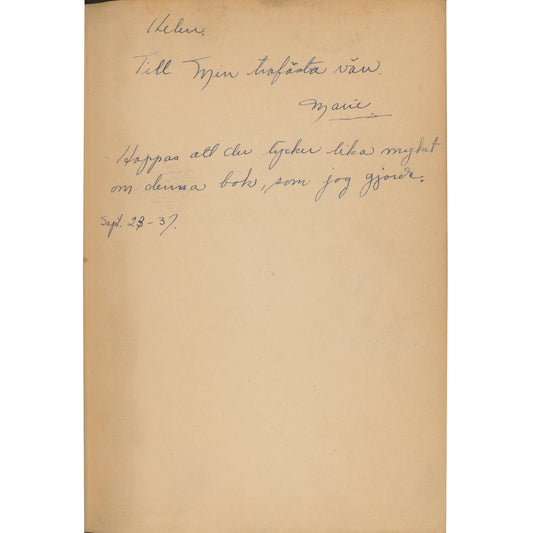 Helen.
Till Min trofästa vän.
Marie
Hoppas att du tycker lika mycket
om denna bok, som jag gjorde.
Sept. 28 - 37.